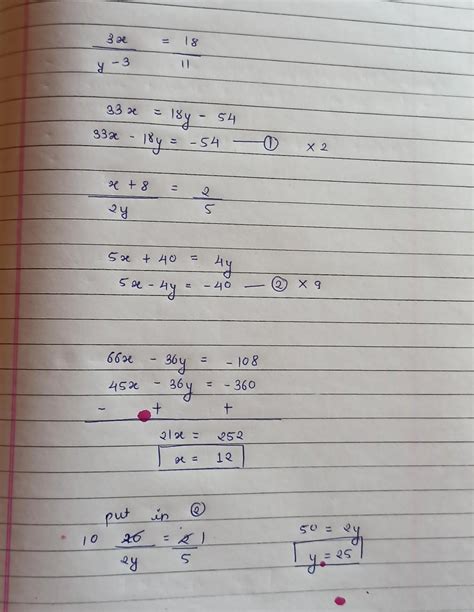 3x/(y-3) = 18/11
33x = 18y - 54
33x - 18y = -54 — ① × 2
(x + 8)/2y = 2/5
5x + 40 = 4y
5x - 4y = -40 — ② × 9
66x - 36y = -108
45x - 36y = -360
- + +
21x = 252
x = 12
put in ②
10 20/2y = 2/5 1
50 = 2y
y = 25